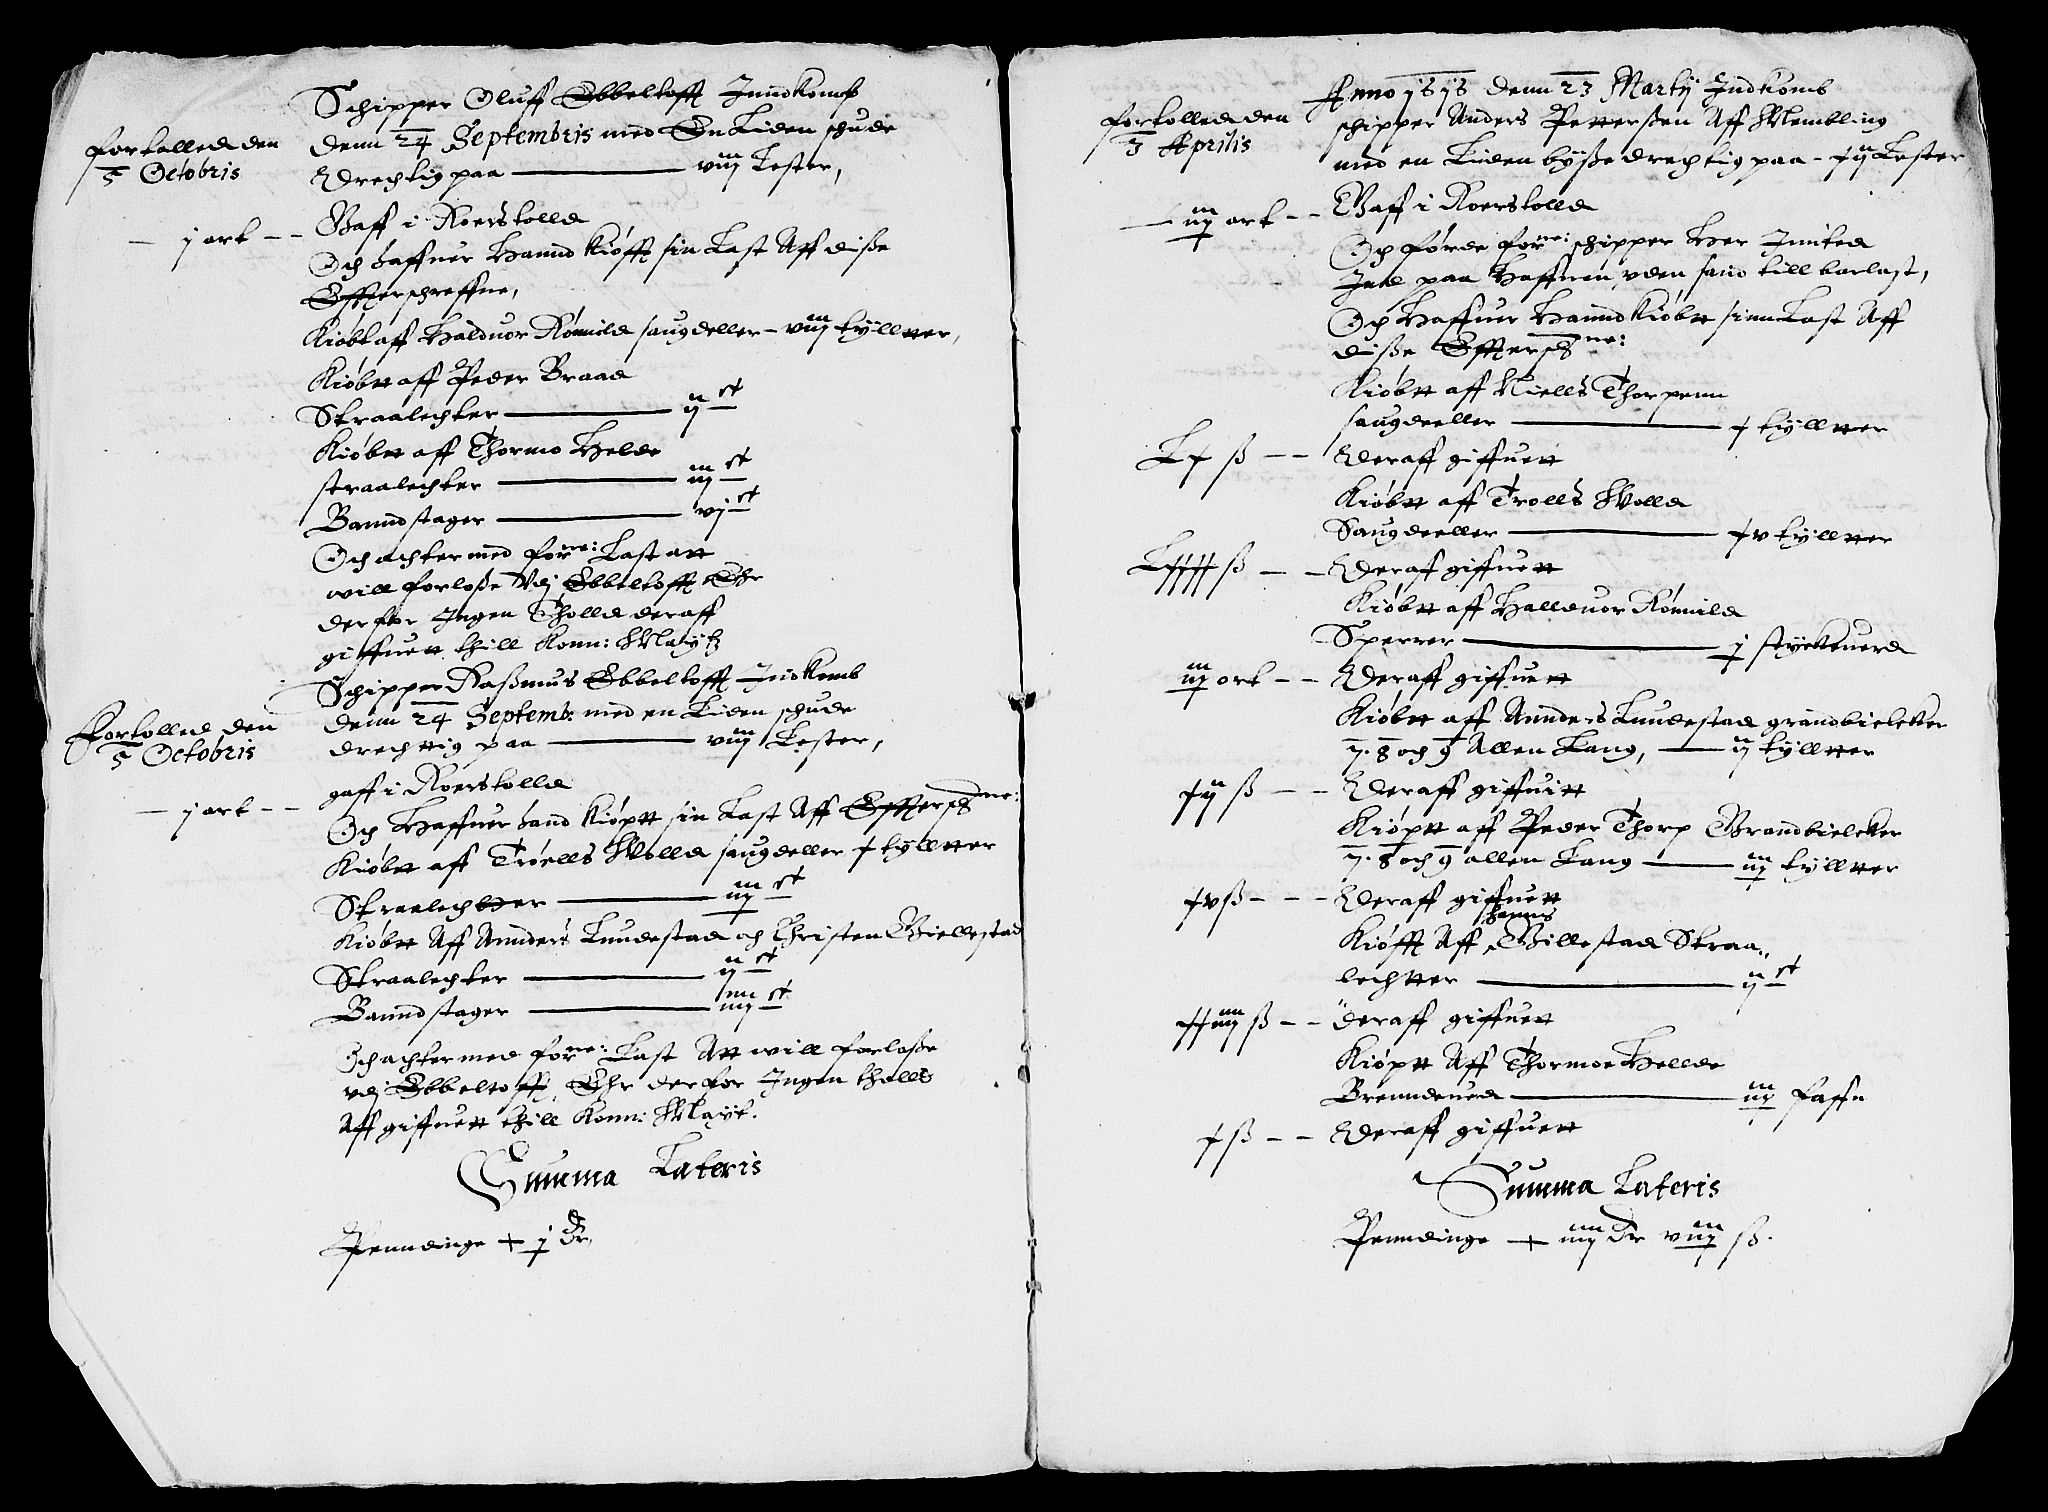 Schipper Oluff Ebbeltofft Inndkomb
denn 24 Septembris med En Liden schude
drechtig paa — viij Lester,
fortolled den
5 Octobris
Gaff i Roerstolld
— j ort —
Och haffuer hannd kiøfft sin Last Aff disse
Effterschreffne,
Kiøbt aff Halduor Rømild saugdeller – viij tylltter,
Kiøbtt aff Peder Braad
Straalechter — ij st
Kiøbtt aff Thormo Helde
straalechter — iij st
Baandstager — vj st
Och achter med forne: Last att
will forløsse Vdj Ebbeltofft Ehr
derfor Ingen Tholld deraff
giffuett thill Konn: Maytz
Schipper Rassmus Ebbeltofft Indkomb
denn 24 Septemb: med en Liden schude
drechttig paa — viij Lester,
Fortolled den
5 Octobris
gaff i Roerstolld
— j ort —
Och Haffuer hand kiøptt sin Last Aff Efftersch ne:
Kiøbtt aff Trøells Wolld saugdeller x tylltter
Straalechtter — iij st
Kiøbtt Aff Annders Lundestad och Christen Giellestad
Straalechter — ij st
Baandstager — iiij st
Och achter med forne: Last Att will forløsse
vdj Ebbeltofft, Ehr derfor Ingen tholld
Aff giffuett thill Konn: Mayt.
Summa Lateris
Penndinge + j Dr,
Anno 1515 denn 23 Martij Indkomb
schipper Anders Petterssen Aff Membling
med en Liden bysse drechtig paa – xij Lester
fortolled den
3 Aprilis
Gaff i Roerstolld
— iij ort —
Och førde forne: schipper Her Inited
Ind paa Haffnen vden sand till barlast,
Och Haffuer Hannd kiøbtt sinn Last Aff
disse Efftersch ne:
Kiøbtt aff Niells Thorpenn
saugdeller — x tylltter
Lx ß — Deraff giffuett
Kiøbtt aff Trolls Wolld
Saugdeller — xv tylltter
Lxxxx ß — Deraf giffuett
Kiøbtt aff Halduor Rømild
Sperrer — j styckeuerd
iij ort — Deraff giffuett
Kiøbtt aff Annders Lundestad grandbielcker
7. 8 och 9 Allen Lang, — ij tylltter
xij ß — Deraff giffuitt
Kiøptt aff Peder Thorp Grandbielcker
7. 8 och 9 allen Lang — iij tylltter
xv ß — Deraff giffuett
Kiøfft Aff hanns Gillestad Straa-
lechtter — ij st
xxiiij ß — deraff giffuett
Kiøptt Aff Thormoe Hellde
Brenndeued — iij faffn
x ß — Deraff giffuett
Summa Lateris
Penndinge + iiij Dr viij ß.